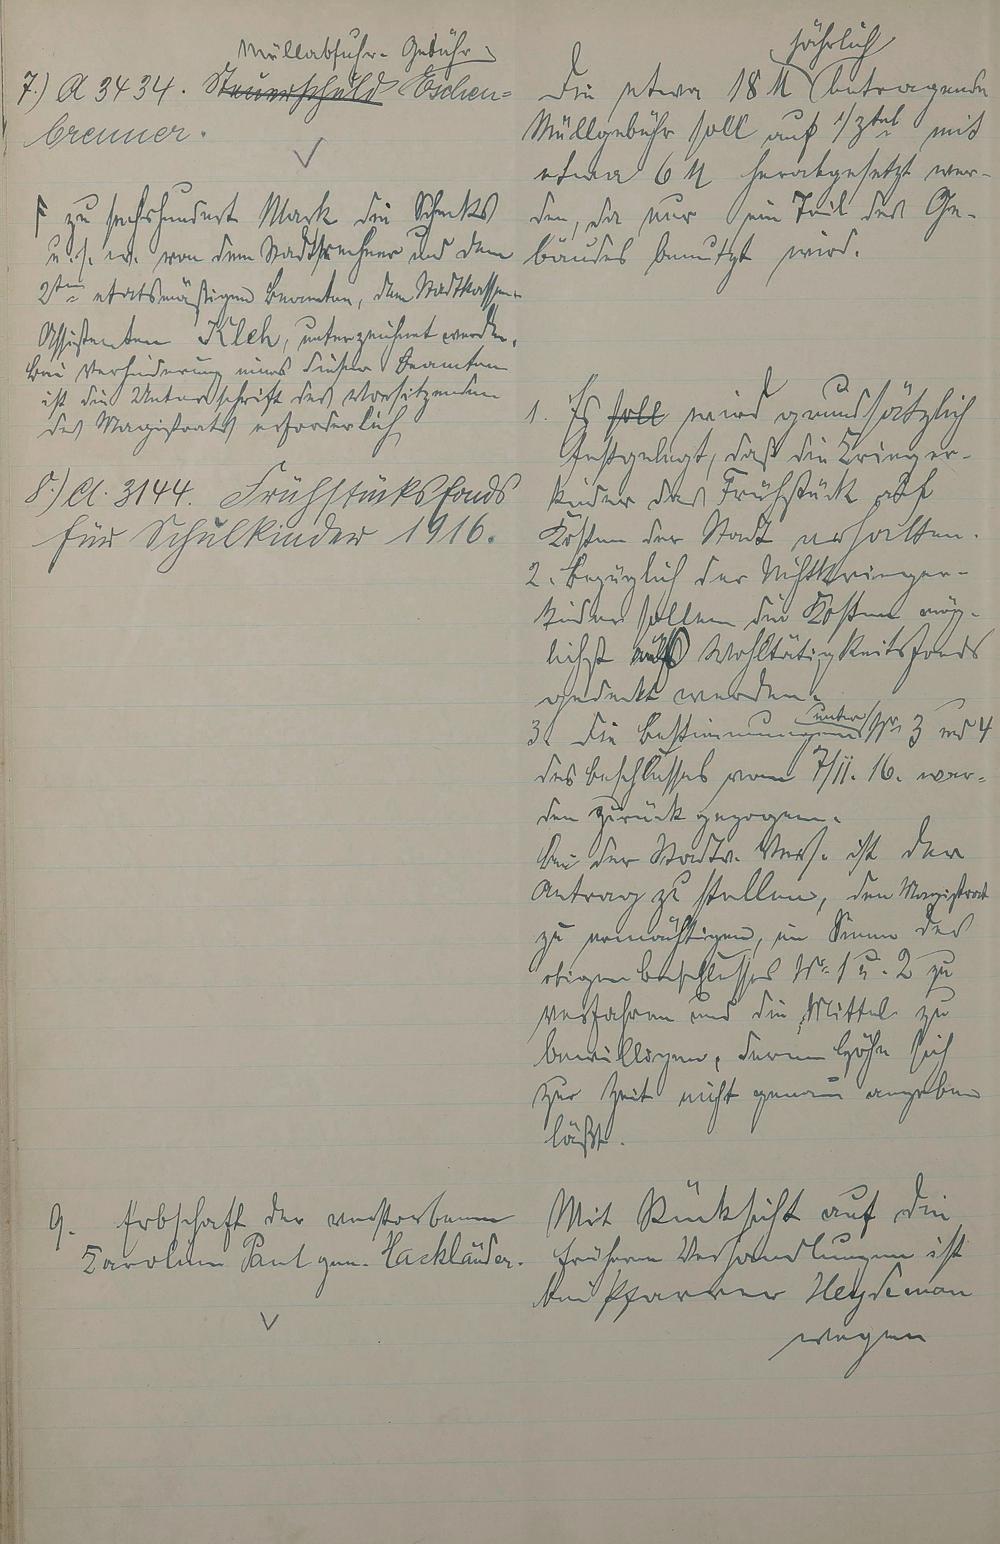 Müllabfuhr-Gebühr
7.) A 3434. Steuerschuld Eschen=
brenner.
F zu sechshundert Mark die Schecks
u. s. w. von dem Stadtrechner und dem
2ten etatsmäßigen Beamten, dem Stadtkassen-
Assistenten Kleh, unterzeichnet werden.
Bei Verhinderung eines dieser Beamten
ist die Unterschrift des Vorsitzenden
des Magistrats erforderlich
8.) A. 3144. Frühstücksfonds
für Schulkinder 1916.
9. Erbschaft der verstorbenen
Karoline Paul gen. Hackländer.
jährlich
Die etwa 18 M betragende
Müllgebühr soll auf 1/3tel mit
etwa 6 M herabgesetzt wer-
den, da nur ein Teil des Ge-
bäudes benutzt wird.
1. Es soll wird grundsätzlich
festgelegt, daß die Krieger-
kinder das Frühstück auf
Kosten der Stadt erhalten.
2. Bezüglich der Nichtkrieger-
kinder sollen die Kosten mög-
lichst aus Wohltätigkeitsfonds
gedeckt werden.
3. Die Bestimmungen unter Nr. 3 und 4
des Beschlusses vom 7/II. 16. wer-
den zurück gezogen.
Bei der Stadtv. Vers. ist der
Antrag zu stellen, den Magistrat
zu ermächtigen, im Sinne des
obigen Beschlusses Nr. 1 u. 2 zu
verfahren und die Mittel zu
bewilligen, deren Höhe sich
zur Zeit nicht genau angeben
läßt.
Mit Rücksicht auf die
früheren Verhandlungen ist
bei Pfarrer Heydeman
wegen